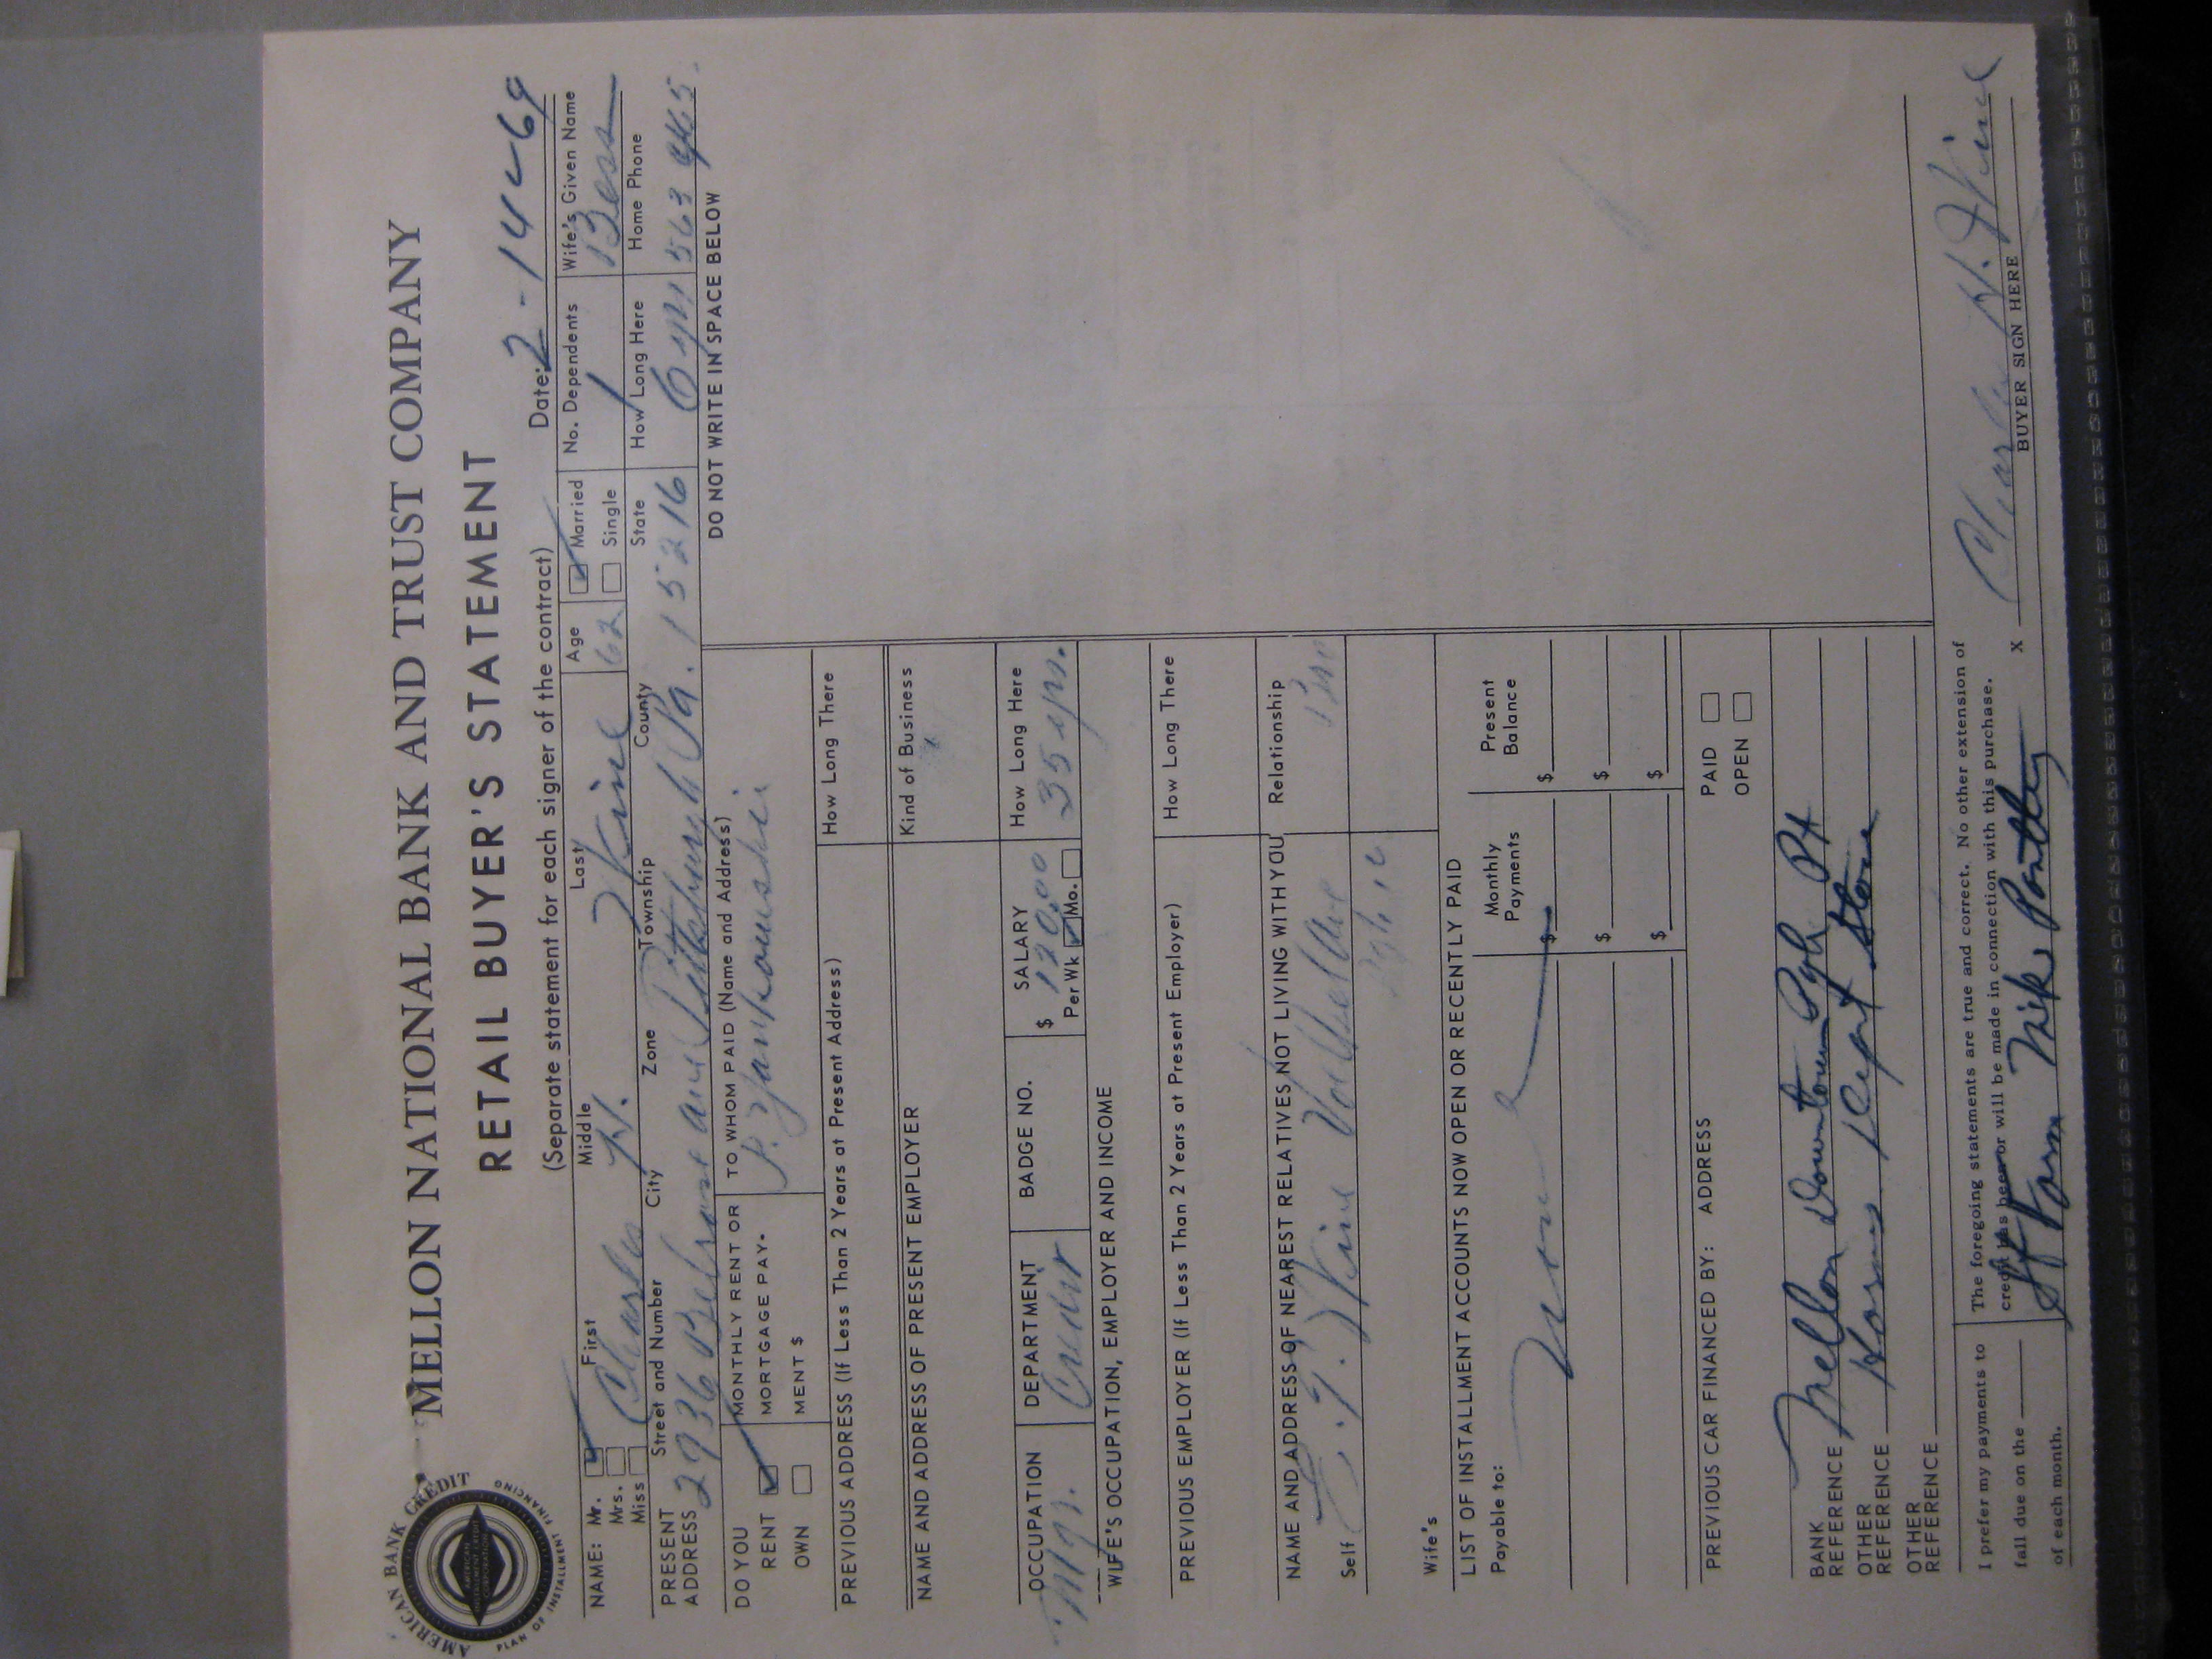 AMERICAN BANK CREDIT
AMERICAN INSTALMENT CREDIT CORPORATION
PLAN OF INSTALLMENT FINANCING
MELLON NATIONAL BANK AND TRUST COMPANY
RETAIL BUYER'S STATEMENT
(Separate statement for each signer of the contract) Date: 2-14-69
NAME: Mr. First Middle Last Age Married No. Dependents Wife's Given Name
Mrs. Charles H. 62 Single 1 Bess
Miss
PRESENT ADDRESS Street and Number City Zone Township County State How Long Here Home Phone
2936 Ave Pittsburgh Pa. 15216 6 yrs 563
DO YOU MONTHLY RENT OR TO WHOM PAID (Name and Address) DO NOT WRITE IN SPACE BELOW
RENT MORTGAGE PAY-
OWN MENT $
PREVIOUS ADDRESS (If Less Than 2 Years at Present Address) How Long There
NAME AND ADDRESS OF PRESENT EMPLOYER Kind of Business
OCCUPATION DEPARTMENT BADGE NO. SALARY How Long Here
Mgr. Credit $ 120.00 35 yrs.
Per Wk Mo.
WIFE'S OCCUPATION, EMPLOYER AND INCOME
PREVIOUS EMPLOYER (If Less Than 2 Years at Present Employer) How Long There
NAME AND ADDRESS OF NEAREST RELATIVES NOT LIVING WITH YOU Relationship
Self
Wife's
LIST OF INSTALLMENT ACCOUNTS NOW OPEN OR RECENTLY PAID
Payable to: Monthly Payments Present Balance
None $ $
$ $
$ $
PREVIOUS CAR FINANCED BY: ADDRESS PAID
OPEN
BANK REFERENCE Mellon Downtown Pgh Pa
OTHER REFERENCE Hornes Dept Store
OTHER REFERENCE
I prefer my payments to fall due on the of each month.
The foregoing statements are true and correct. No other extension of
credit has been or will be made in connection with this purchase.
St Farm Mike
X Charles H.
BUYER SIGN HERE